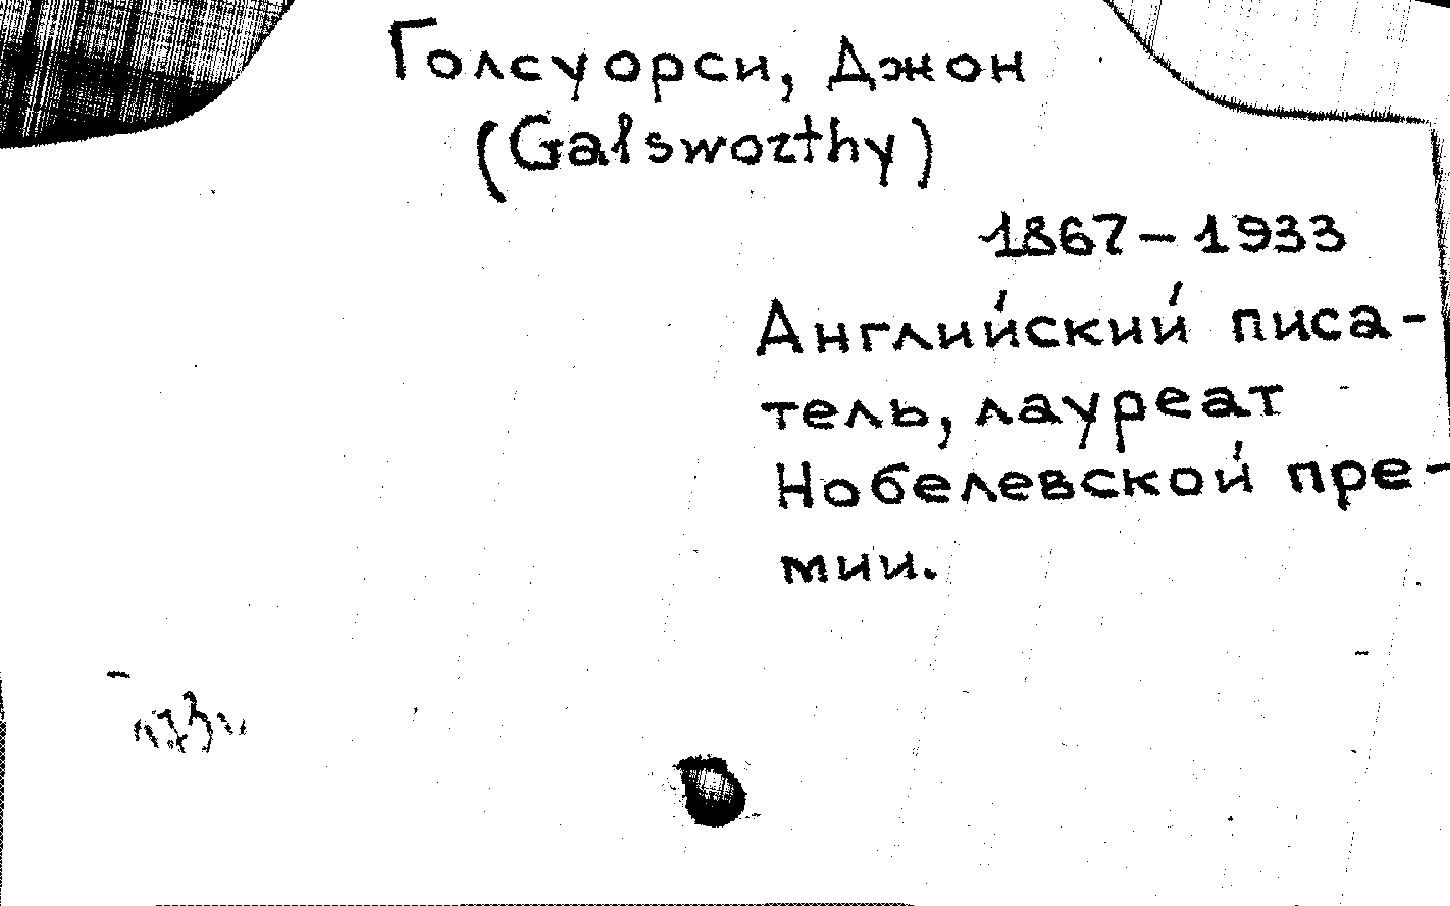 Голсуорси, Джон
(Galsworthy)
1867-1933
Английский писа-
тель, лауреат
Нобелевской пре-
мии.